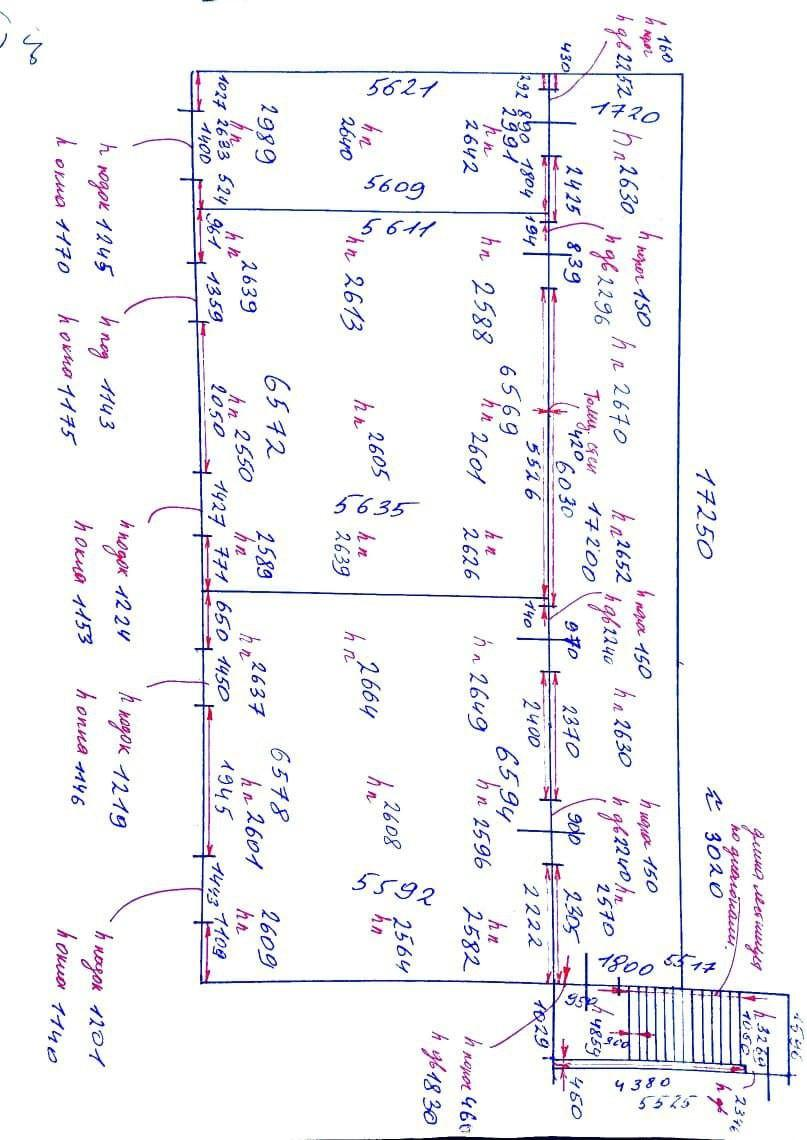 160
h порог
h дв 2252
430
292
890
1720
5621
1027
2989
h п
2633
1400
524
h п
2640
h п
2642
2991
1804
2425
h п 2630
5609
5611
961
h п 2639
1359
h п 2613
h п 2588
194
839
h порог 150
h дв 2296
h п 2670
6569
5526
6030
Толщ. стен
420
17200
17250
6572
2050
h п 2550
h п 2605
h п 2601
5635
1427
771
h п
2589
h п
2639
h п
2626
h п 2652
h порог 150
h дв 2240
140
970
650
1450
h п 2637
h п 2664
h п 2649
2400
2370
h п 2630
6594
6578
1945
h п 2601
h п 2608
h п 2596
900
h порог 150
h дв 2240
h п
2570
5592
1443
1109
h п
2609
h п
2564
h п
2582
2222
2305
≈ 3020
длина лестницы
по диагонали.
1800
5517
950
1029
h 4859
900
h 3260
1050
4546
h дв
2346
4380
5525
460
h порог 460
h дв 1830
h подок 1245
h окна 1170
h под 1143
h окна 1175
h подок 1224
h окна 1153
h подок 1219
h окна 1146
h подок 1201
h окна 1140